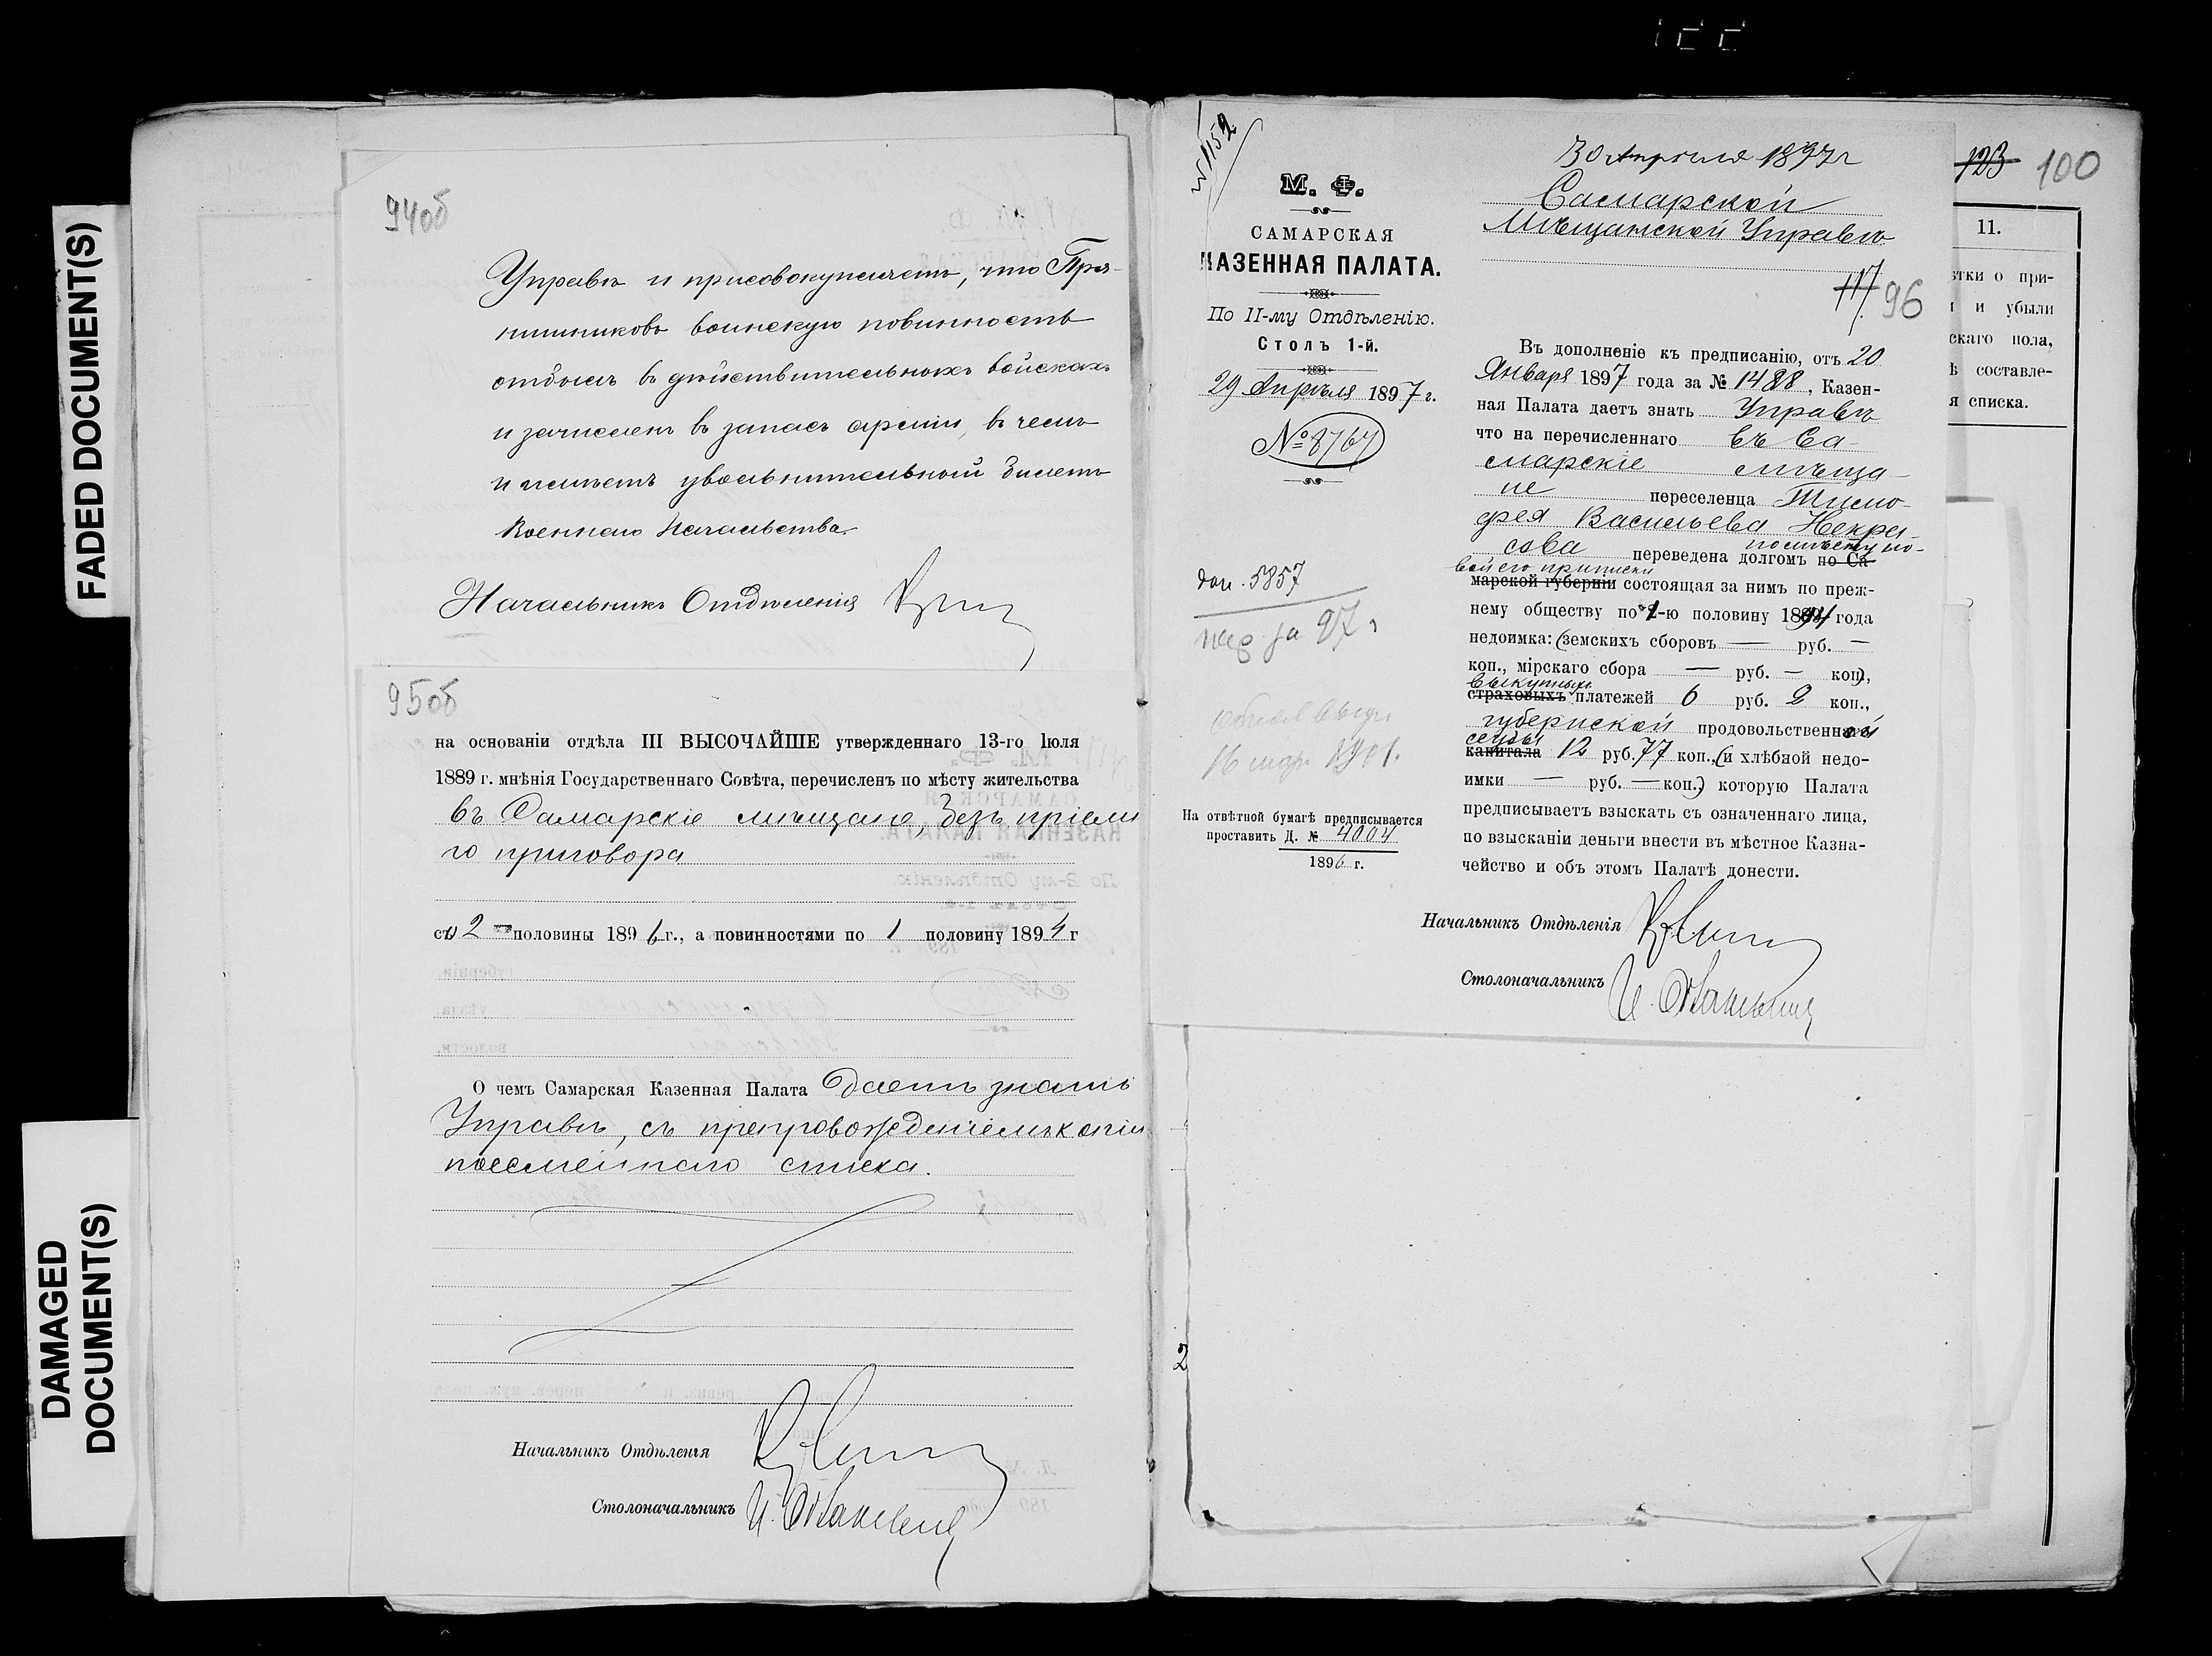 FADED DOCUMENT(S)
DAMAGED
DOCUMENT(S)
94об
Управѣ и присовокупляетъ, что Пря-
нишниковъ воинскую повинность
отбылъ въ дѣйствительныхъ войскахъ
и зачисленъ въ запасъ арміи, въ чемъ
и имѣетъ увольнительный билетъ
Военнаго Начальства.
Начальникъ Отдѣленія
95об
на основаніи отдѣла III ВЫСОЧАЙШЕ утвержденнаго 13-го Іюля
1889 г. мнѣнія Государственнаго Совѣта, перечисленъ по мѣсту жительства
въ Самарскіе мѣщане, безъ пріемн
го приговора
со 2 половины 1896 г., а повинностями по 1 половину 1894 г
О чемъ Самарская Казенная Палата даетъ знать
Управѣ, съ препровожденіемъ копіи
посемейнаго списка.
Начальникъ Отдѣленія
Столоначальникъ
№1152
М. Ф.
САМАРСКАЯ
КАЗЕННАЯ ПАЛАТА.
По II-му Отдѣленію.
Столъ 1-й.
29 Апрѣля 1897 г.
№ 8764
5857
за 97 г
1901.
На отвѣтной бумагѣ предписывается
проставить Д. № 4004
1896 г.
30 Апрѣля 1897 г
Самарской
Мѣщанской Управѣ
117 96
Въ дополненіе къ предписанію, отъ 20
Января 1897 года за № 1488, Казен-
ная Палата даетъ знать Управѣ
что на перечисленнаго въ Са-
марскіе мѣща-
не переселенца Тимо-
фея Васильева Некра-
сова переведена долгомъ по Са-
по мѣсту но-
вой его приписки
марской губерніи состоящая за нимъ по преж-
нему обществу по 1-ю половину 1894 года
недоимка: (земскихъ сборовъ — руб. —
коп., мірскаго сбора — руб. — коп),
выкупныхъ
страховыхъ платежей 6 руб. 2 коп.,
губернской продовольственной
ссуды
капитала 12 руб. 77 коп., (и хлѣбной недо-
имки — руб. — коп.) которую Палата
предписываетъ взыскать съ означеннаго лица,
по взысканіи деньги внести въ мѣстное Казна-
чейство и объ этомъ Палатѣ донести.
Начальникъ Отдѣленія
Столоначальникъ
123 100
11.
тки о при-
и убыли
скаго пола,
составле-
я списка.
2